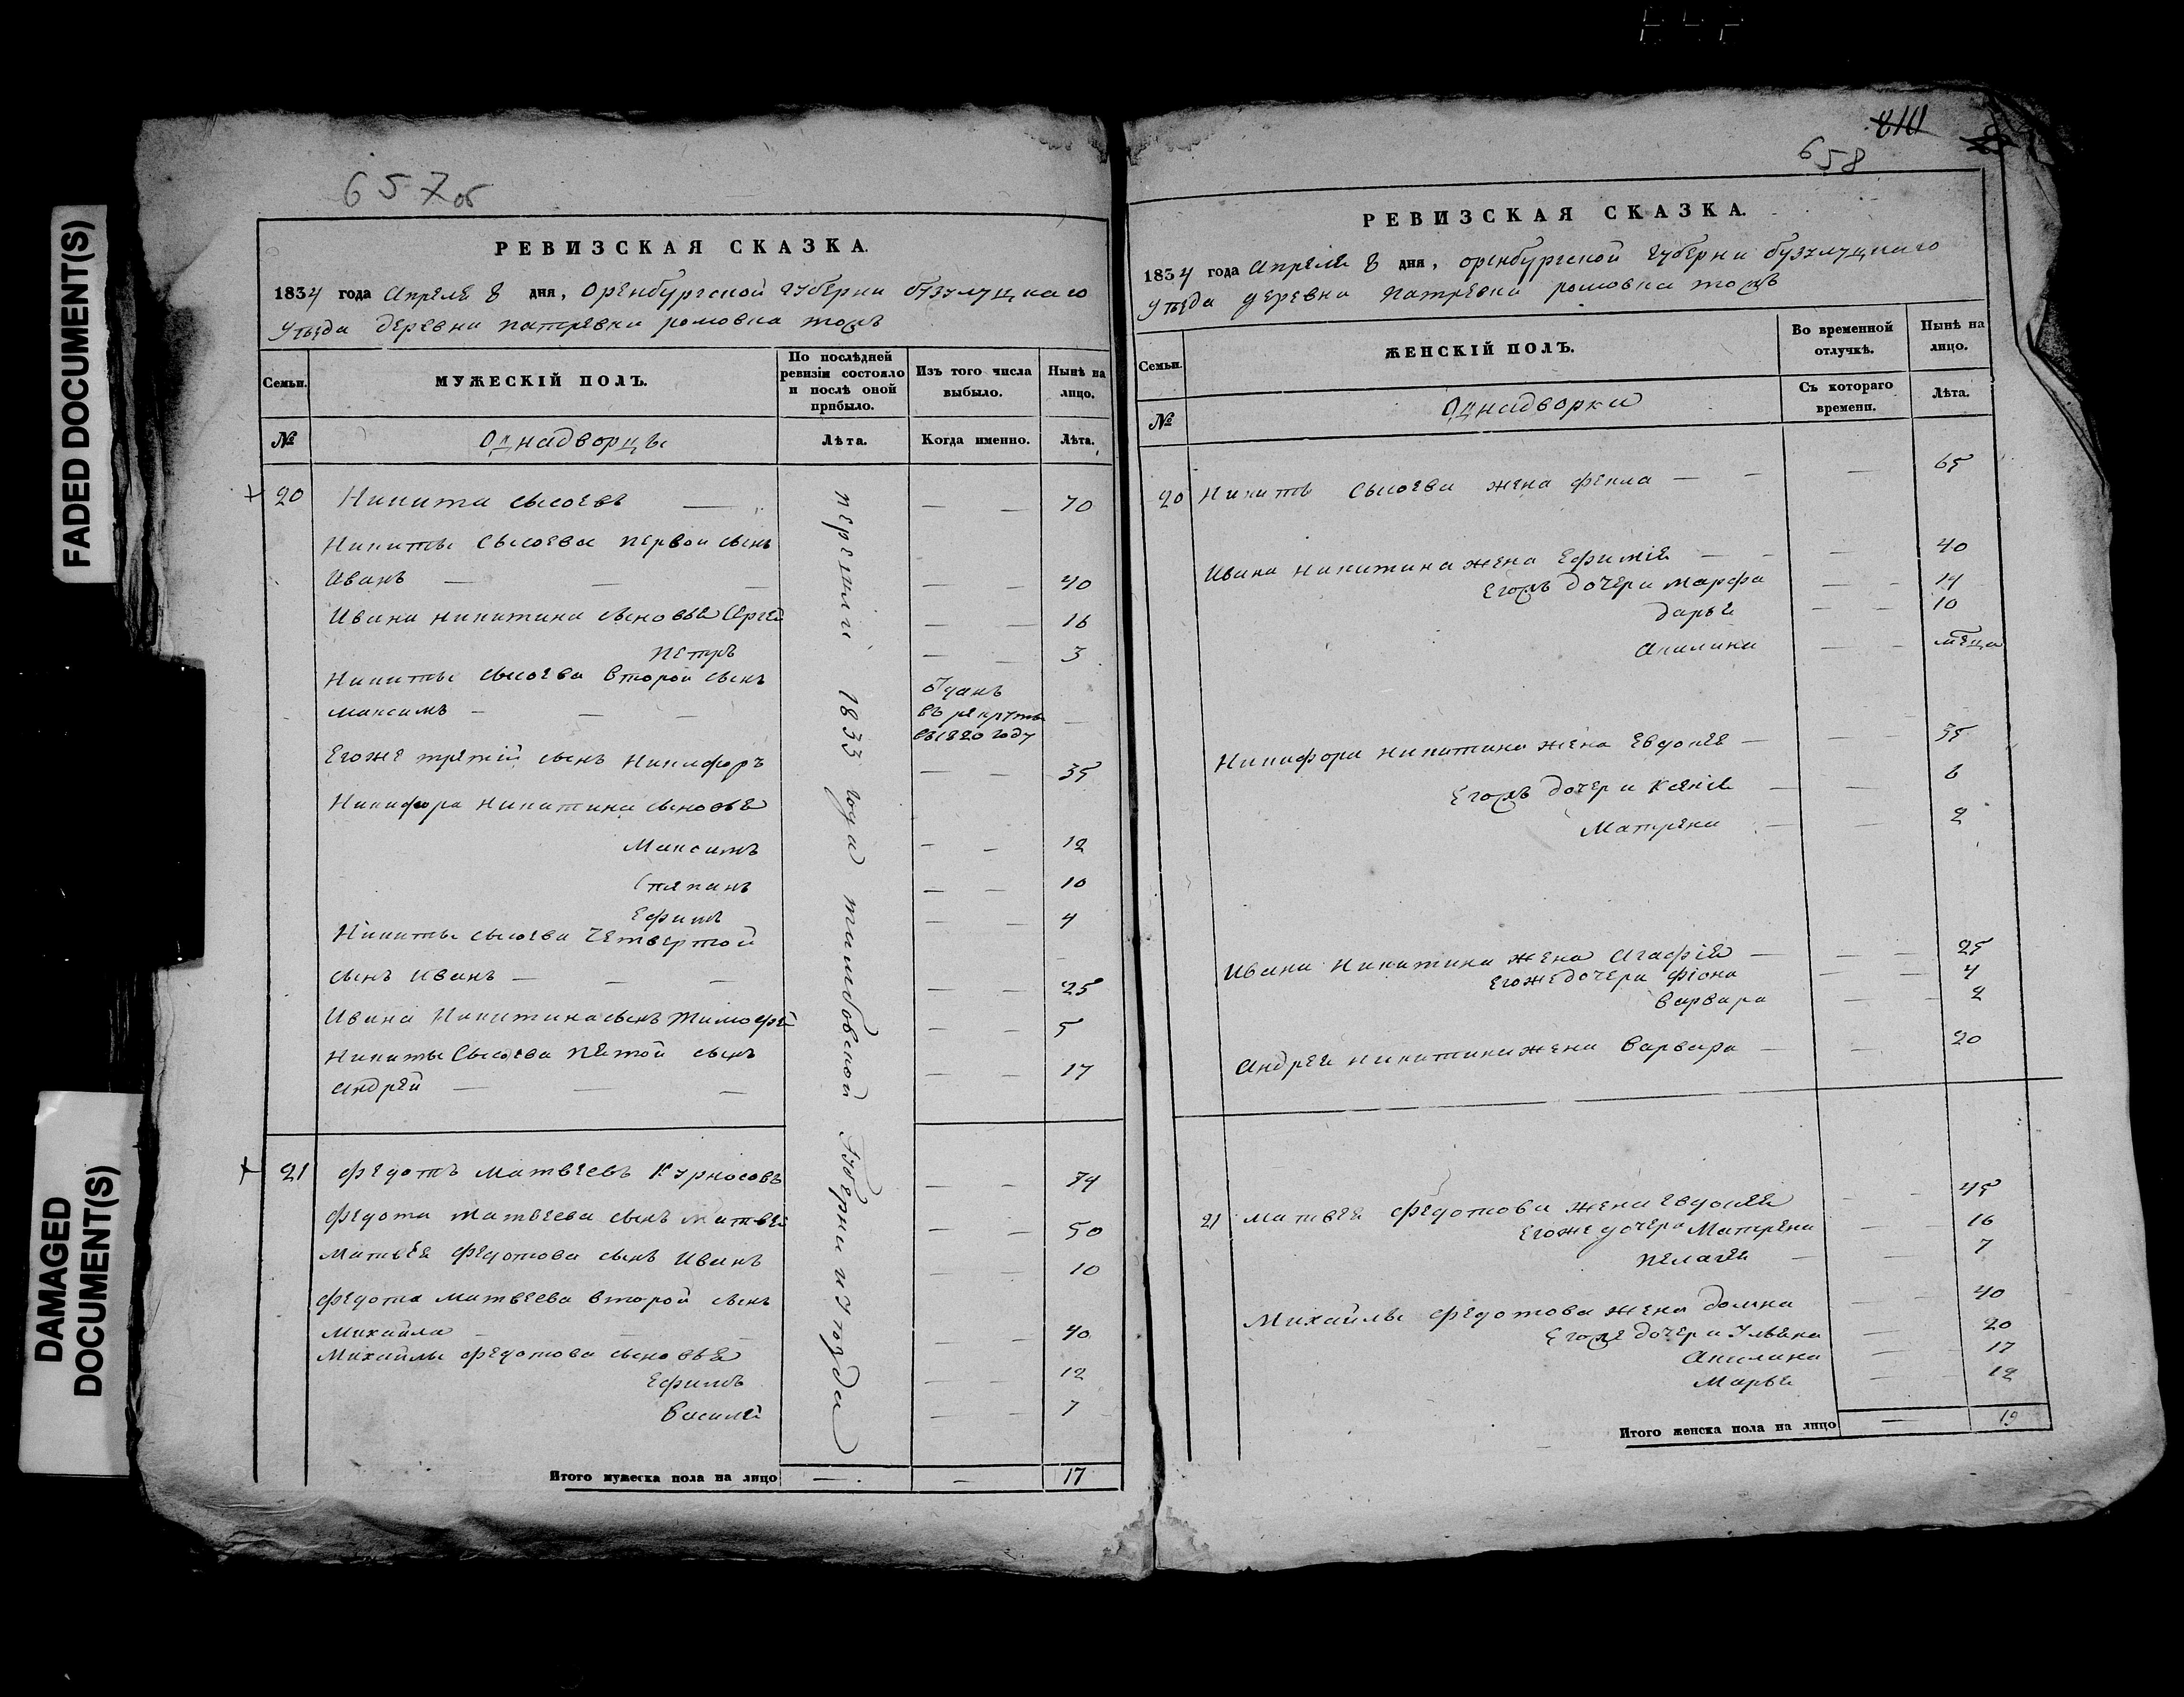 FADED DOCUMENT(S)
DAMAGED
DOCUMENT(S)
657об
РЕВИЗСКАЯ СКАЗКА.
1834 года Апреля 8 дня, Оренбургской губерни бузулуцкаго
уѣзда деревни патревки ромовка тожъ
Семьи.
МУЖЕСКІЙ ПОЛЪ.
По послѣдней ревизіи состояло и послѣ оной прибыло.
Изъ того числа выбыло.
Нынѣ на лицо.
№
Однадворцы
Лѣта.
Когда именно.
Лѣта.
перешли 1833 года тамбовской губерни изъ
20 Никита Сысоевъ — — — 70
Никиты Сысоева первой сынъ
Иванъ — — — — — 40
Ивана Никитина сыновья Сергей — — 16
Петръ — — 3
Никиты Сысоева второй сынъ
Максимъ — — — отданъ въ рекруты въ 1820 году —
Егоже третій сынъ Никифоръ — — 35
Никифора Никитина сыновья
Максимъ — — 12
Степанъ — — 10
Ефимъ — — 4
Никиты Сысоева четвертой
сынъ Иванъ — — — — — 25
Ивана Никитина сынъ Тимофей — — 5
Никиты Сысоева пятой сынъ
Андрей — — — — — 17
21 Федотъ Матвеевъ Курносовъ — — 74
Федота Матвеева сынъ Матвей — — 50
Матвея Федотова сынъ Иванъ — — 10
Федота Матвеева второй сынъ
Михайла — — — — — 40
Михайлы Федотова сыновья
Ефимъ — — 12
Василей — — 7
Итого мужеска пола на лицо — — 17
810
658
РЕВИЗСКАЯ СКАЗКА.
1834 года Апреля 8 дня, оренбургской губерни бузулуцкаго
уѣзда деревни патревки ромовка тожъ
Семьи.
ЖЕНСКІЙ ПОЛЪ.
Во временной отлучкѣ.
Нынѣ на лицо.
№
Однадворки
Съ котораго времени.
Лѣта.
20 Никиты Сысоева жена Фекла — — — 65
Ивана Никитина жена Ефимія — — — 40
Егожъ дочери Марфа — — 14
Дарья — — 10
Акилина — — мѣсца
Никифора Никитина жена Евдокея — — — 35
Егожъ дочери Ксенія — — 6
Матрена — — 2
Ивана Никитина жена Агафія — — — 25
Егоже дочери Фіона — — 4
Варвара — — 2
Андрея Никитина жена Варвара — — 20
21 Матвея Федотова жена Евдокея — — 45
Егоже дочери Матрена — — 16
Пелагея — — 7
Михайлы Федотова жена Домна — — 40
Егоже дочери Ульяна — — 20
Акилина — — 17
Марья — — 12
Итого женска пола на лицо — 19